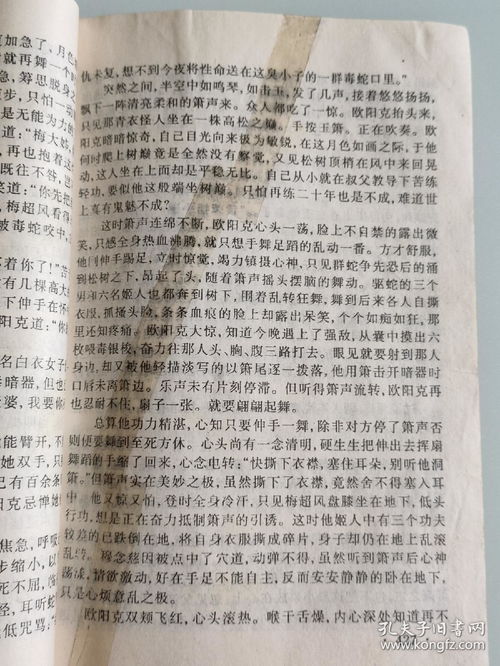 更加急了、月色
就再舞一个时
急，筹思脱身之
步，只怕一
是无能为力倒
道：“梅大姊，
，再也抱着这
既往不咎，
笑道：“你先把
，梅超风看得
被毒蛇咬中，
着你了！”苦
有几棵高大的
下伸手在怀
欧阳克道：“你
名白衣女子
暗器，但也
婆，我要你
能臂开，不
她双手，只
已有百余
克忌惮她
焦急，呼吸
步缩小，以
死不屈，
经，耳听蛇
低咒骂：“
仇未复，想不到今夜将性命送在这臭小子的一群毒蛇口里。”
突然之间，半空中如鸣琴，如击玉，发了几声，接着悠悠扬扬，
飘下一阵清亮柔和的箫声来。众人都吃了一惊。欧阳克抬头来，
只见那青衣怪人坐在一株高松之巅。手按玉箫。正在吹奏。欧
阳克暗暗惊奇，自己目光向来极为敏锐，在这月色如画之际，于他
何时爬上树巅竟是全然没有察觉，又见松树顶梢在风中来回晃
动，这人坐在上面却是平稳无比。自己从小就在叔父教导下苦练
轻功，要似他这般端坐树巅，只怕再练二十年也是不成，难道世
上真有鬼魅不成？
这时箫声连绵不断，欧阳克心头一荡，脸上不自禁的露出微
笑，只感全身热血沸腾，就只想手舞足蹈的乱动一番。方才舒服，
他刚伸手踢足，立时惊觉，竭力镇摄心神，只见群蛇争先恐后的涌
到松树之下，昂起了头，随着箫声摇头摆脑的舞动。驱蛇的三个
男和六名姬人也都奔到树下，围着乱转狂舞，舞到后来各人自撕
衣服，抓搔头脸，条条血痕的脸上却露出呆笑，个个如痴如狂，那
里还知疼痛。欧阳克大惊，知道今晚遇上了强敌，从囊中摸出六
枚喂毒银梭，奋力往那人头、胸、腹三路打去。眼见就要射到那人
身边，却又被他轻描淡写的以箫尾逐一拨落，他用箫击开暗器时
口唇未离箫边。乐声未有片刻停滞。但听得箫声流转，欧阳克再
也忍耐不住，扇子一张。就要翩翩起舞。
总算他功力精湛，心知只要伸手一舞，除非对方停了箫声否
则便要舞到至死方休。心头尚有一念清明，硬生生把伸出去挥扇
舞蹈的手缩了回来，心念电转：“快撕下衣襟，塞住耳朵，别听他洞
箫。”但箫声实在美妙之极，虽然撕下了衣襟，竟然舍不得塞入耳
中。他又惊又怕，登时全身冷汗，只见梅超风盘膝坐在地下，低头
行功，想是正在奋力抵制箫声的引诱。这时他姬人中有三个功夫
较差的已跌倒在地，将自身衣服撕成碎片，身子却仍在地上乱滚
乱转。穆念慈因被点中了穴道，动弹不得，虽然听到箫声后心神
荡漾，情欲激动，好在手足不能自主，反而安安静静的卧在地下，
只是心烦意乱之极。
欧阳克双颊飞红，心头滚热。喉干舌燥，内心深处知道再不
孔夫子旧书网
www.kongfz.com